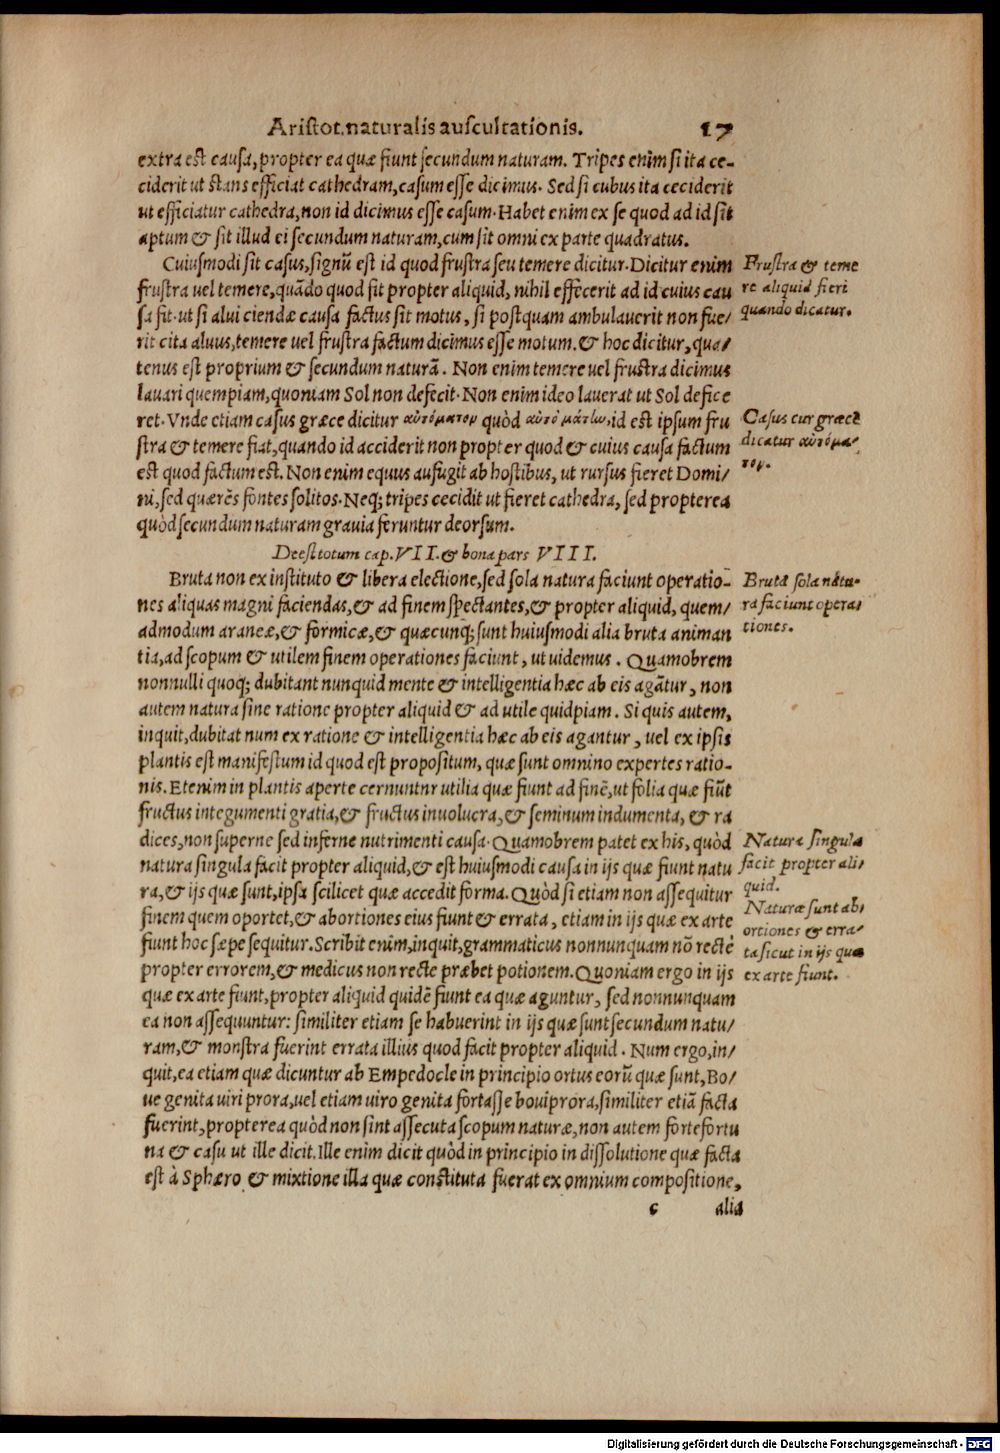 Aristot. naturalis auscultationis. 17
extra est causa, propter ea quæ fiunt secundum naturam. Tripes enim si ita ce-
ciderit ut stans efficiat cathedram, casum esse dicimus. Sed si cubus ita ceciderit
ut efficiatur cathedra, non id dicimus esse casum. Habet enim ex se quod ad id sit
aptum & sit illud ei secundum naturam, cum sit omni ex parte quadratus.
Cuiusmodi sit casus, signũ est id quod frustra seu temere dicitur. Dicitur enim
frustra uel temere, quãdo quod sit propter aliquid, nihil effecerit ad id cuius cau
sa fit. ut si alui ciendæ causa factus sit motus, si postquam ambulauerit non fue/
rit cita aluus, temere uel frustra factum dicimus esse motum. & hoc dicitur, qua/
tenus est proprium & secundum naturã. Non enim temere uel frustra dicimus
lauari quempiam, quoniam Sol non defecit. Non enim ideo lauerat ut Sol defice
ret. Vnde etiam casus græce dicitur αὐτόματον quòd αὐτὸ μάτlω, id est ipsum fru
stra & temere fiat, quando id acciderit non propter quod & cuius causa factum
est quod factum est. Non enim equus aufugit ab hostibus, ut rursus fieret Domi/
ni, sed quærẽs fontes solitos. Neq; tripes cecidit ut fieret cathedra, sed propterea
quòd secundum naturam grauia feruntur deorsum.
Deest totum cap. VII. & bona pars VIII.
Bruta non ex instituto & libera electione, sed sola natura faciunt operatio-
nes aliquas magni faciendas, & ad finem spectantes, & propter aliquid, quem/
admodum araneæ, & formicæ, & quæcunq; sunt huiusmodi alia bruta animan
tia, ad scopum & utilem finem operationes faciunt, ut uidemus. Quamobrem
nonnulli quoq; dubitant nunquid mente & intelligentia hæc ab eis agãtur, non
autem natura sine ratione propter aliquid & ad utile quidpiam. Si quis autem,
inquit, dubitat num ex ratione & intelligentia hæc ab eis agantur, uel ex ipsis
plantis est manifestum id quod est propositum, quæ sunt omnino expertes ratio-
nis. Etenim in plantis aperte cernuntnr utilia quæ fiunt ad finẽ, ut folia quæ fiũt
fructus integumenti gratia, & fructus inuolucra, & seminum indumenta, & ra
dices, non superne sed inferne nutrimenti causa. Quamobrem patet ex his, quòd
natura singula facit propter aliquid, & est huiusmodi causa in ijs quæ fiunt natu
ra, & ijs quæ sunt, ipsa scilicet quæ accedit forma. Quòd si etiam non assequitur
finem quem oportet, & abortiones eius fiunt & errata, etiam in ijs quæ ex arte
fiunt hoc sæpe sequitur. Scribit enim, inquit, grammaticus nonnunquam nõ recte
propter errorem, & medicus non recte præbet potionem. Quoniam ergo in ijs
quæ ex arte fiunt, propter aliquid quidẽ fiunt ea quæ aguntur, sed nonnunquam
ea non assequuntur: similiter etiam se habuerint in ijs quæ sunt secundum natu/
ram, & monstra fuerint errata illius quod facit propter aliquid. Num ergo, in/
quit, ea etiam quæ dicuntur ab Empedocle in principio ortus eorũ quæ sunt, Bo/
ue genita uiri prora, uel etiam uiro genita fortasse bouiprora, similiter etiã facta
fuerint, propterea quòd non sint assecuta scopum naturæ, non autem forte fortu
na & casu ut ille dicit. Ille enim dicit quòd in principio in dissolutione quæ facta
est à Sphæro & mixtione illa quæ constituta fuerat ex omnium compositione,
c alia
Frustra & teme
re aliquid fieri
quando dicatur.
Casus cur græce
dicatur αὐτόμα-
τον.
Bruta sola natu-
ra faciunt opera/
tiones.
Natura singula
facit propter ali/
quid.
Naturæ sunt ab/
ortiones & erra/
ta sicut in ijs quæ
ex arte fiunt.
Digitalisierung gefördert durch die Deutsche Forschungsgemeinschaft - DFG